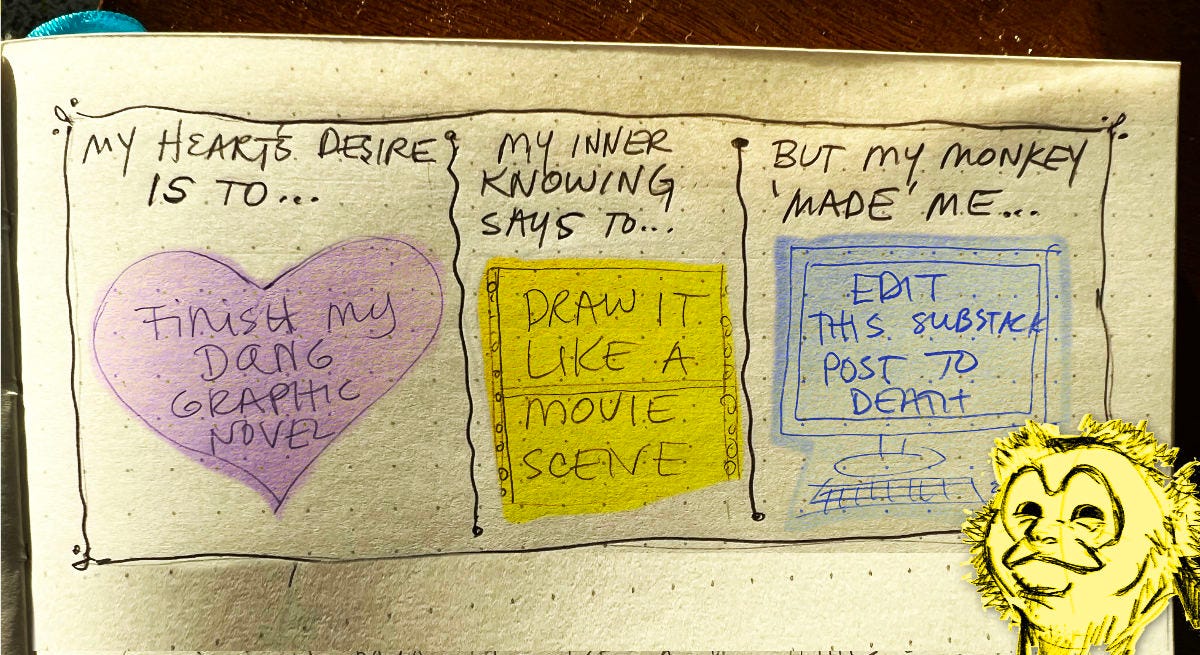 MY HEART'S DESIRE
IS TO...
FINISH MY
DANG
GRAPHIC
NOVEL
MY INNER
KNOWING
SAYS TO...
DRAW IT
LIKE A
MOVIE
SCENE
BUT MY MONKEY
'MADE' ME...
EDIT
THIS SUBSTACK
POST TO
DEATH